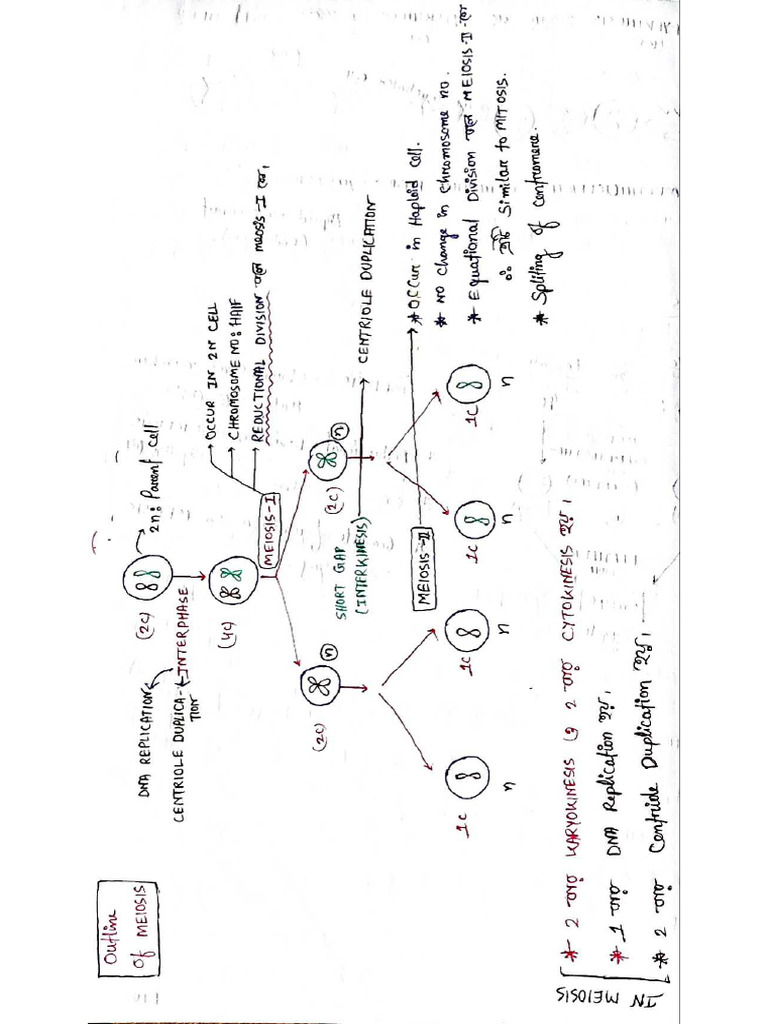 Outline
of MEIOSIS
DNA REPLICATION
CENTRIOLE DUPLICA-
TION
INTERPHASE
(2C)
2n: Parent cell
(4C)
MEIOSIS-I
OCCUR IN 2N CELL
CHROMOSOME NO: HAlF
REDUCTIONAL DIVISION বলে meosis-I কে।
(2C)
n
(2C)
n
SHORT GAP
(INTERKINESIS)
CENTRIOLE DUPLICATION
MEIOSIS-II
* OCCur in Haploid Cell.
* NO change in chromosome no.
* Equational Division বলে MEIOSIS-II কে
∴ এটি Similar to MITOSIS.
* Spliting of centromere.
1C
n
1C
n
1C
n
1C
n
IN MEIOSIS
* 2 বার KARYOKINESIS ও 2 বার CYTOKINESIS হয়।
* 1 বার DNA Replication হয়।
* 2 বার Centriole Duplication হয়।